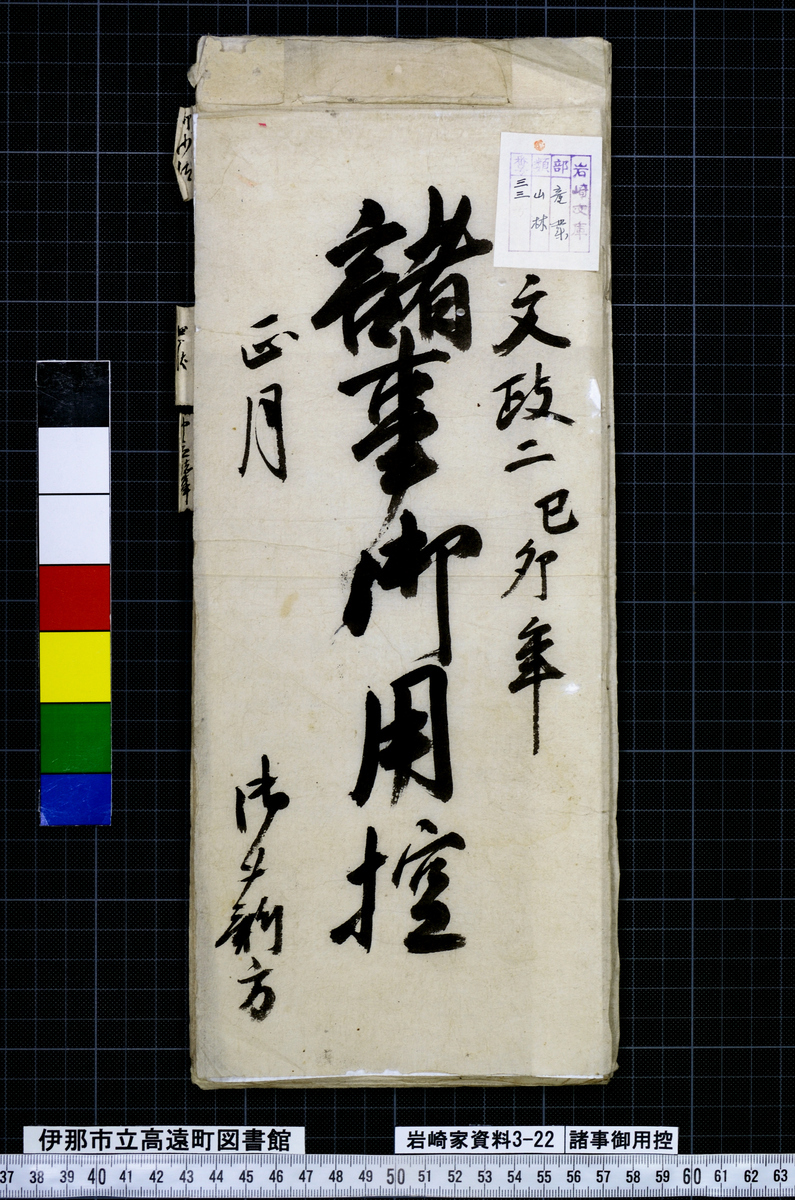 岩崎文庫
部 産業
類 山林
号 三三
文政二己卯年
諸事御用控
正月
方
伊那市立高遠町図書館
岩崎家資料3-22 諸事御用控
37 38 39 40 41 42 43 44 45 46 47 48 49 50 51 52 53 54 55 56 57 58 59 60 61 62 63